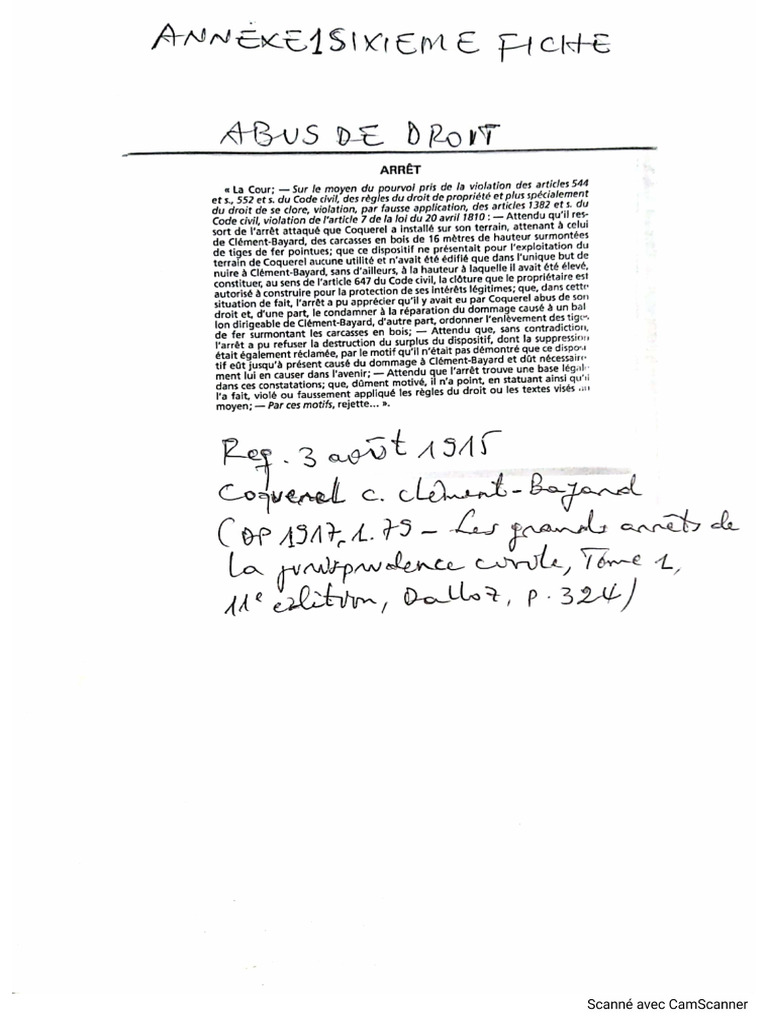 ANNÉXE1SIXIEME FICHE
ABUS DE DROIT
ARRÊT
« La Cour; — Sur le moyen du pourvoi pris de la violation des articles 544
et s., 552 et s. du Code civil, des règles du droit de propriété et plus spécialement
du droit de se clore, violation, par fausse application, des articles 1382 et s. du
Code civil, violation de l'article 7 de la loi du 20 avril 1810 : — Attendu qu'il res-
sort de l'arrêt attaqué que Coquerel a installé sur son terrain, attenant à celui
de Clément-Bayard, des carcasses en bois de 16 mètres de hauteur surmontées
de tiges de fer pointues; que ce dispositif ne présentait pour l'exploitation du
terrain de Coquerel aucune utilité et n'avait été édifié que dans l'unique but de
nuire à Clément-Bayard, sans d'ailleurs, à la hauteur à laquelle il avait été élevé,
constituer, au sens de l'article 647 du Code civil, la clôture que le propriétaire est
autorisé à construire pour la protection de ses intérêts légitimes; que, dans cette
situation de fait, l'arrêt a pu apprécier qu'il y avait eu par Coquerel abus de son
droit et, d'une part, le condamner à la réparation du dommage causé à un bal
lon dirigeable de Clément-Bayard, d'autre part, ordonner l'enlèvement des tiges
de fer surmontant les carcasses en bois; — Attendu que, sans contradiction,
l'arrêt a pu refuser la destruction du surplus du dispositif, dont la suppression
était également réclamée, par le motif qu'il n'était pas démontré que ce disposi
tif eût jusqu'à présent causé du dommage à Clément-Bayard et dût nécessaire-
ment lui en causer dans l'avenir; — Attendu que l'arrêt trouve une base légal
dans ces constatations; que, dûment motivé, il n'a point, en statuant ainsi qu'il
l'a fait, violé ou faussement appliqué les règles du droit ou les textes visés au
moyen; — Par ces motifs, rejette... ».
Req. 3 août 1915
Coquerel c. Clément-Bayard
(DP 1917.1.79 – Les grands arrêts de
la jurisprudence civile, Tome 1,
11e edition, Dalloz, p. 324)
Scanné avec CamScanner